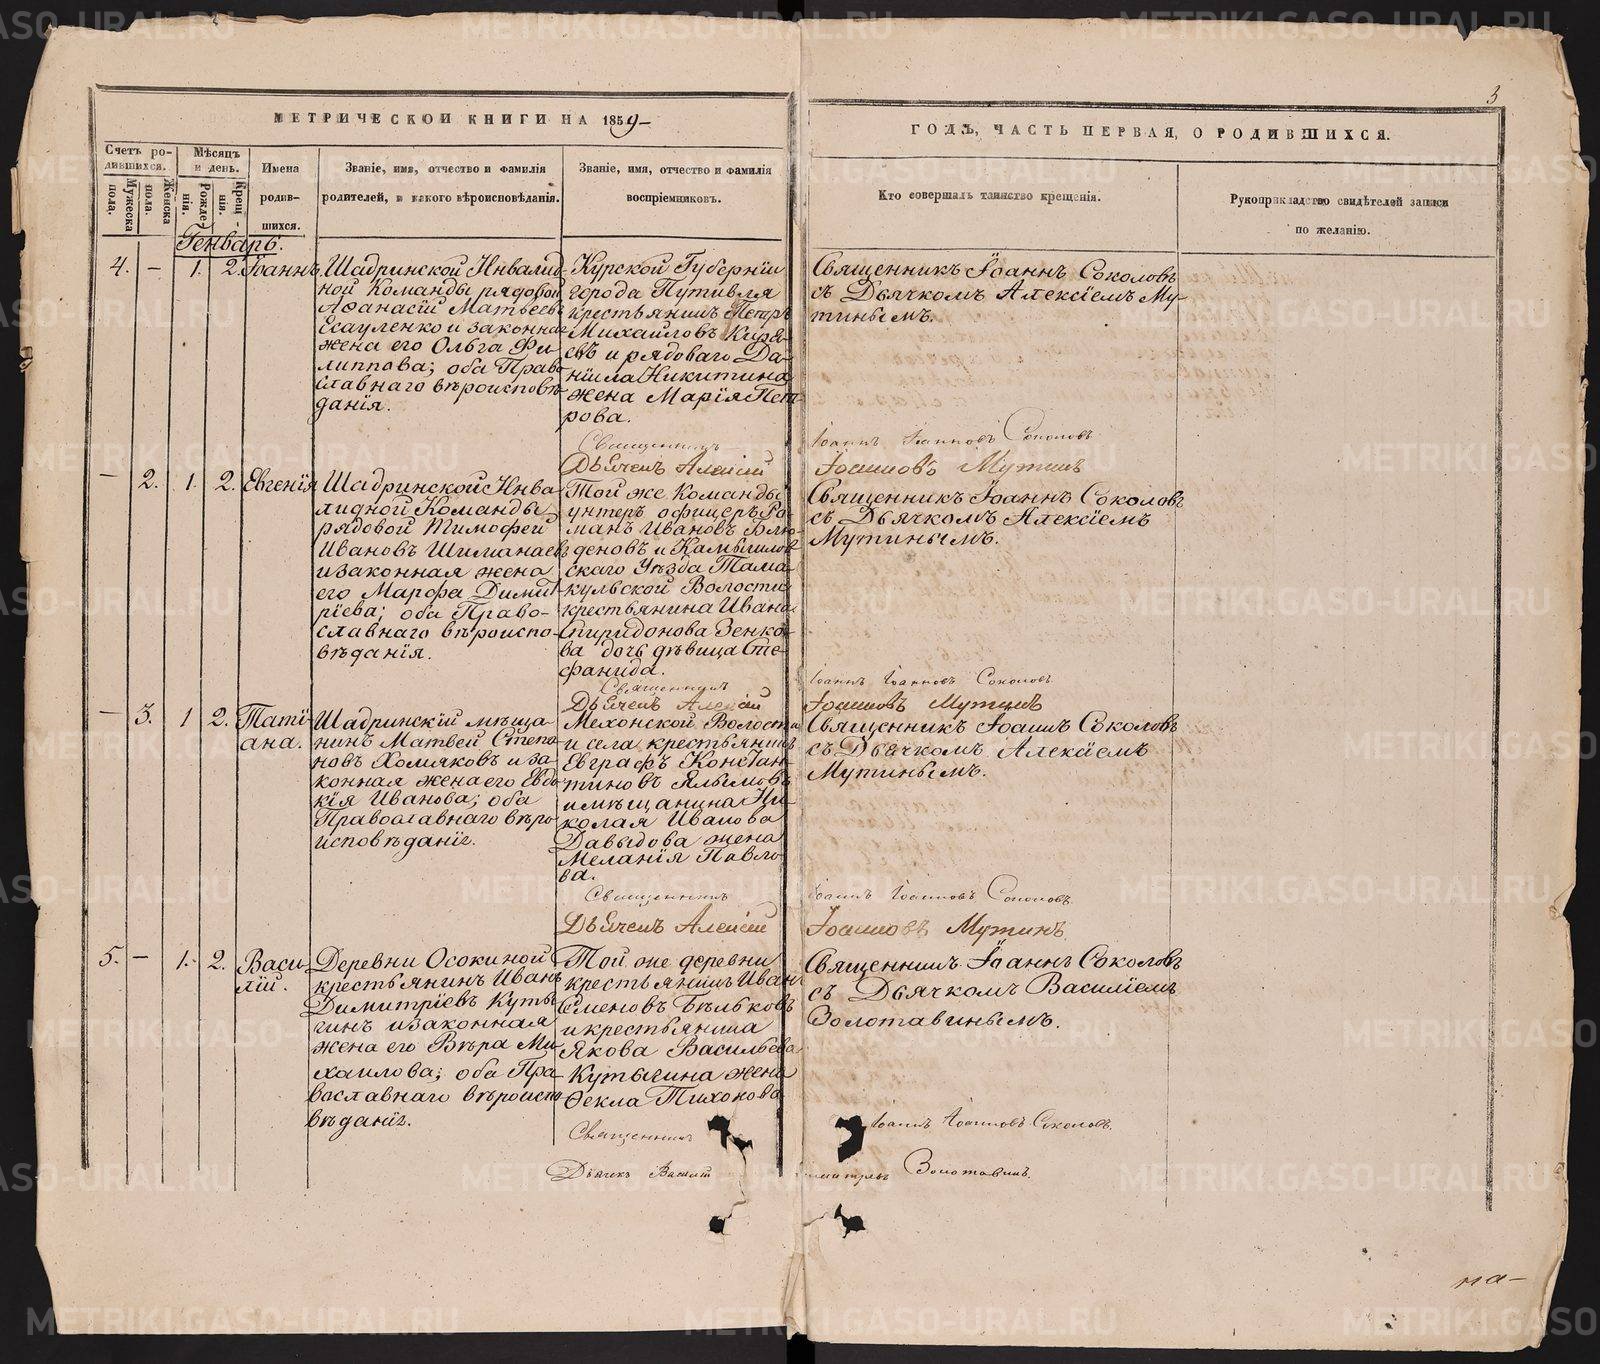 3
МЕТРИЧЕСКОЙ КНИГИ НА 1859
ГОДЪ, ЧАСТЬ ПЕРВАЯ, О РОДИВШИХСЯ.
Счетъ ро-
дившихся.
Мужеска
пола.
Женска
пола.
Мѣсяцъ
и день.
Рожде
нія.
Крещ
нія.
Имена
родив-
шихся.
Званіе, имя, отчество и фамилія
родителей, и какого вѣроисповѣданія.
Званіе, имя, отчество и фамилія
воспріемниковъ.
Кто совершалъ таинство крещенія.
Рукоприкладство свидѣтелей записи
по желанію.
Генварь.
4. – 1. 2. Іоаннъ.
Шадринской Инвалид
ной Команды рядовой
Афанасій Матѳеевъ
Есауленко и законная
жена его Ольга Фи-
липпова; оба Право
славнаго вѣроисповѣ
данія.
Курской Губерніи
города Путивля
крестьянинъ Петръ
Михайловъ Кирѣ-
евъ и рядоваго Да-
ніила Никитина
жена Марія Пет
рова.
Священникъ Іоаннъ Соколовъ
съ Дьячкомъ Алексіемъ Му-
тинымъ.
Священникъ Іоаннъ Іоанновъ Соколовъ
Дьячекъ Алексій Іоанновъ Мутинъ
– 2. 1. 2. Евгенія
Шадринской Инва
лидной Команды
рядовой Тимофей
Ивановъ Шиманаевъ
и законная жена
его Марфа Димит
ріева; оба Право-
славнаго вѣроиспо-
вѣданія.
Той же Команды
унтеръ офицеръ Ро-
манъ Ивановъ Блю-
деновъ и Камышлов
скаго Уѣзда Тама-
кульской Волости
крестьянина Ивана
Спиридонова Зенко-
ва дочь дѣвица Сте-
фанида.
Священникъ Іоаннъ Соколовъ
съ Дьячкомъ Алексіемъ
Мутинымъ.
Священникъ Іоаннъ Іоанновъ Соколовъ
Дьячекъ Алексій Іоанновъ Мутинъ
– 3. 1 2. Таті-
ана.
Шадринскій мѣща-
нинъ Матвей Степа
новъ Хомяковъ и за-
конная жена его Евдо
кія Иванова; оба
Православнаго вѣро
исповѣданія.
Мехонской Волости
и села крестьянинъ
Евграфъ Констан-
тиновъ Ялымовъ
и мѣщанина Ни-
колая Иванова
Давыдова жена
Меланія Павло-
ва.
Священникъ Іоаннъ Соколовъ
съ Дьячкомъ Алексіемъ
Мутинымъ.
Священникъ Іоаннъ Іоанновъ Соколовъ
Дьячекъ Алексій Іоанновъ Мутинъ
5. – 1. 2. Васи-
лій.
Деревни Осокиной
крестьянинъ Иванъ
Димитріевъ Куты
гинъ и законная
жена его Вѣра Ми
хаилова; оба Пра-
вославнаго вѣроиспо
вѣданія.
Той же деревни
крестьянинъ Иванъ
Семеновъ Бѣльковъ
и крестьянина
Якова Васильева
Кутыгина жена
Ѳекла Тихонова
Священникъ Іоаннъ Соколовъ
съ Дьячкомъ Василіемъ
Золотавинымъ.
Священникъ Іоаннъ Іоанновъ Соколовъ.
Дьячекъ Золотавинъ.
на-
METRIKI.GASO-URAL.RU